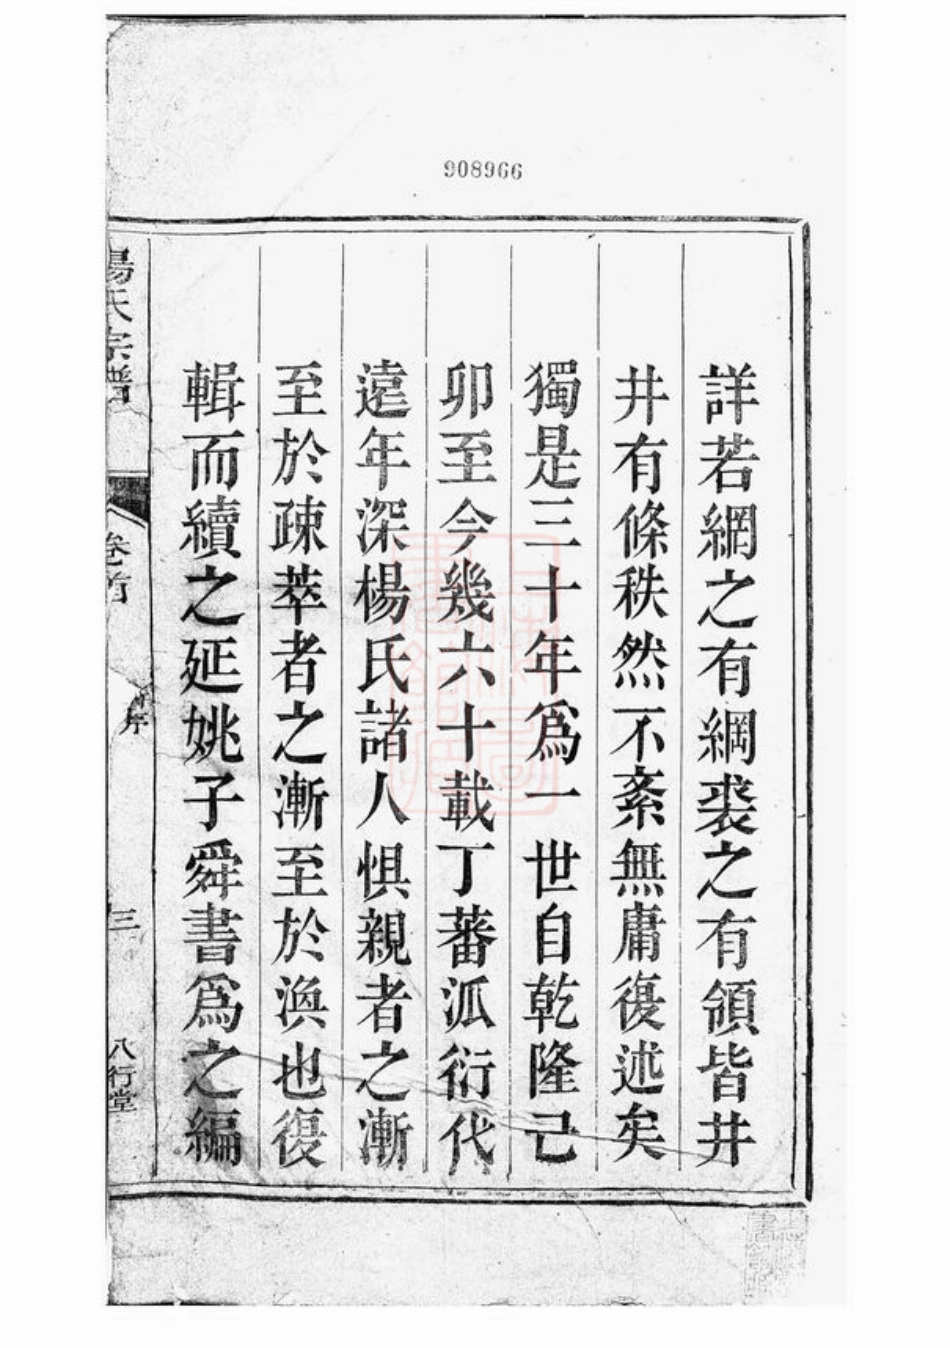 908966
詳若網之有綱裘之有領皆井
井有條秩然不紊無庸復述矣
獨是三十年爲一世自乾隆己
卯至今幾六十載丁蕃泒衍代
遠年深楊氏諸人惧親者之漸
至於疎萃者之漸至於渙也復
輯而續之延姚子舜書爲之編
楊氏宗譜
卷首
序
三
八行堂